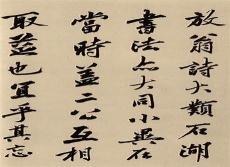 放翁詩大類石湖
書法亦大同小異在
當時蓋二公互相
取益也宜乎其忘